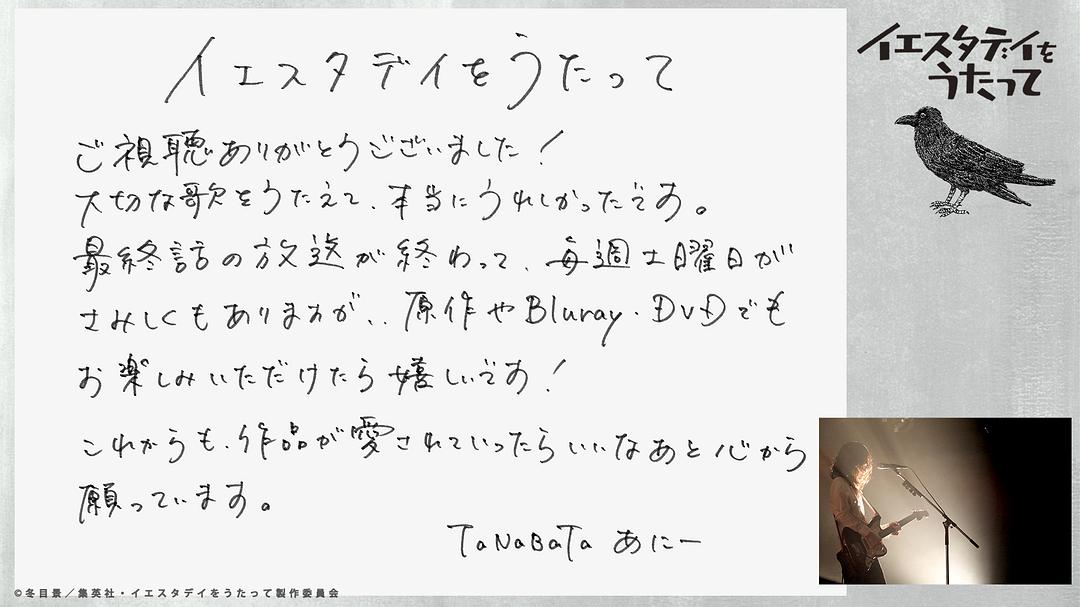 イエスタデイをうたって
ご視聴ありがとうございました！
大切な歌をうたえて、本当にうれしかったです。
最終話の放送が終わって、毎週土曜日が
さみしくもありますが、、原作やBluray・DVDでも
お楽しみいただけたら嬉しいです！
これからも、作品が愛されていったらいいなあと心から
願っています。
TaNaBaTa あにー
イエスタデイを
うたって
©冬目景／集英社・イエスタデイをうたって製作委員会